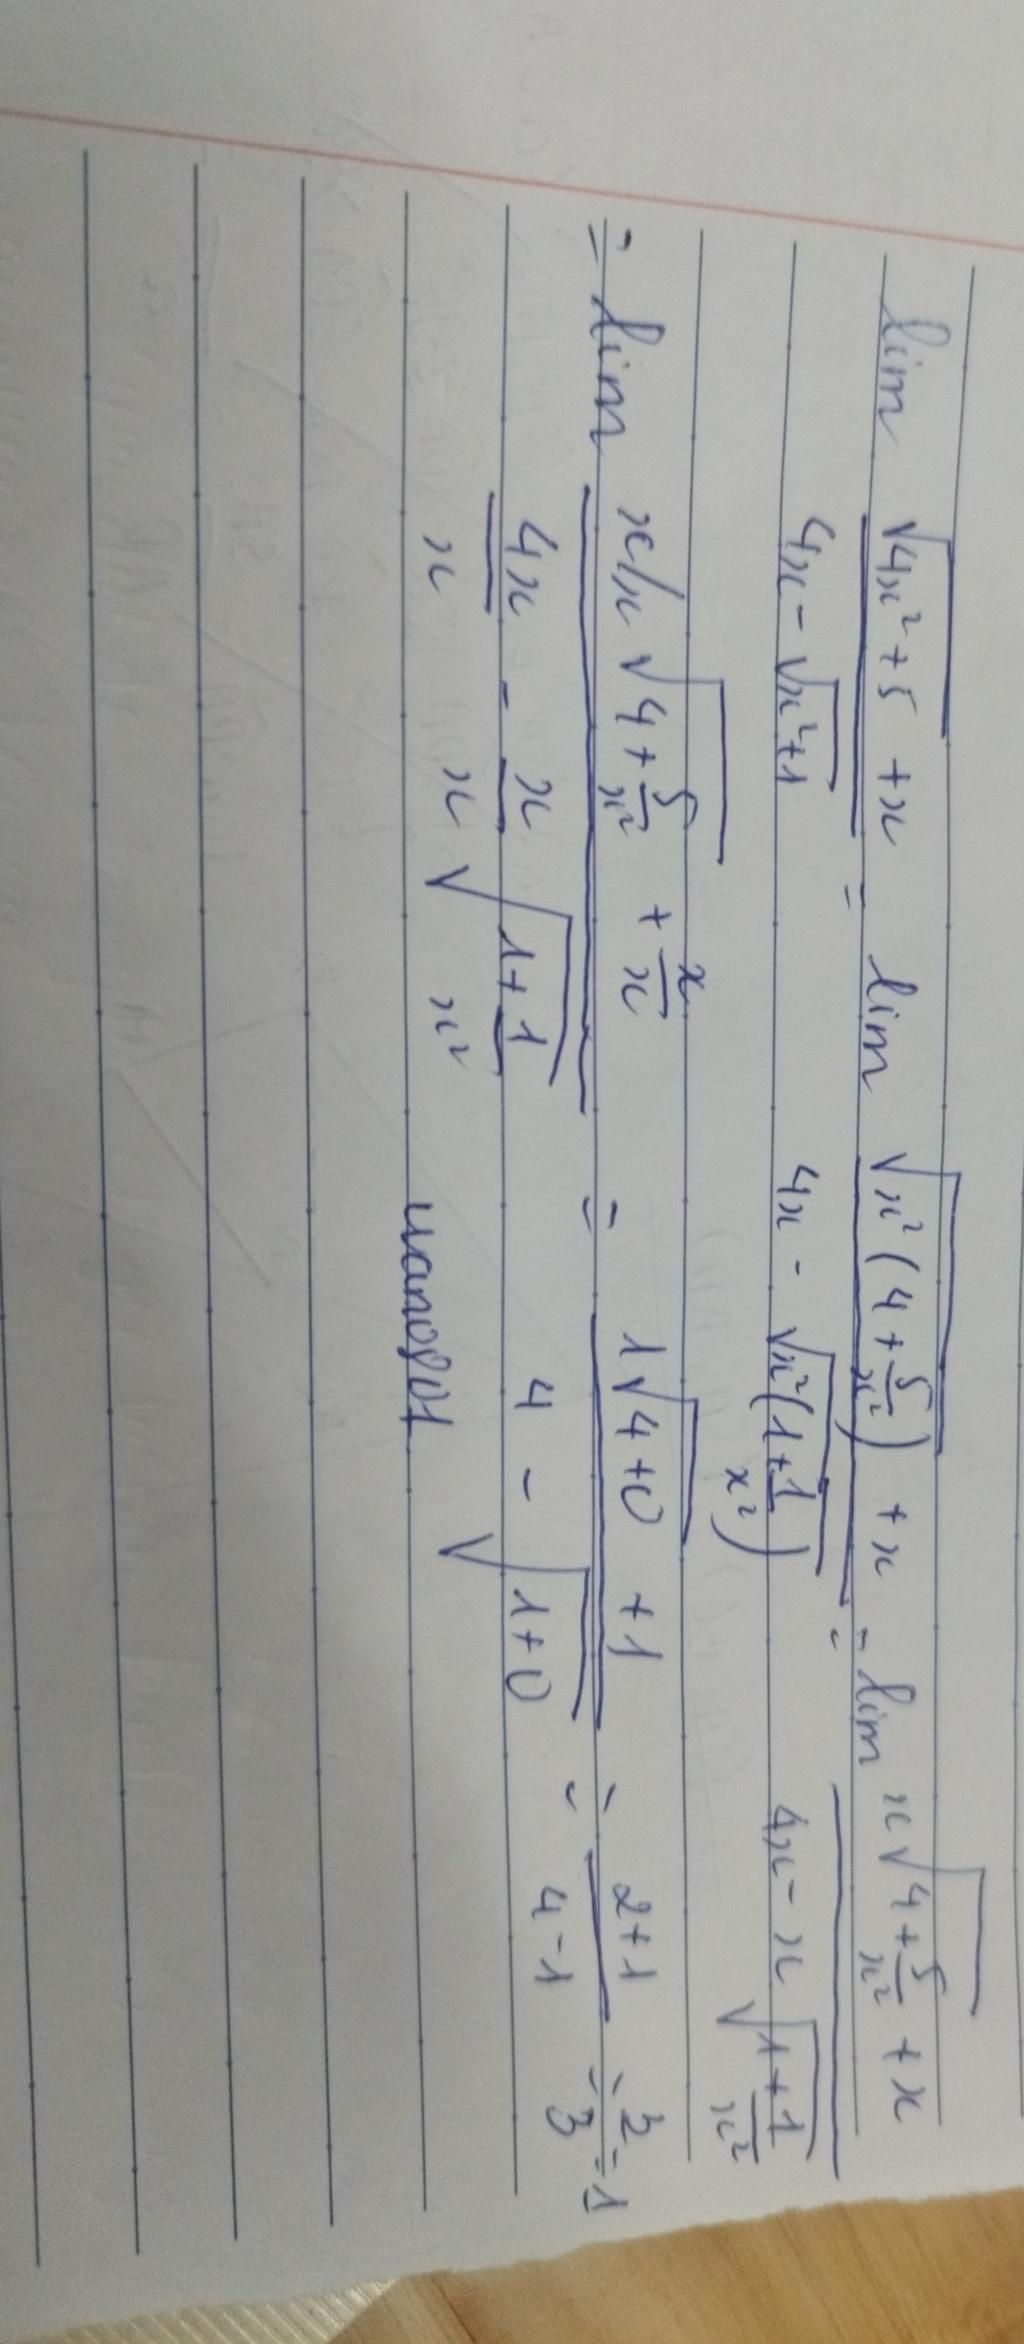 lim √(4x²+5) +x / 4x - √(x²+1) = lim √(x²(4+5/x²)) +x / 4x - √(x²(1+1/x²)) = lim x√(4+5/x²) +x / 4x - x√(1+1/x²)
= lim x/x √(4+5/x²) + x/x / 4x/x - x/x √(1+1/x²) = 1√(4+0) +1 / 4 - √(1+0) = 2+1 / 4-1 = 3/3 = 1